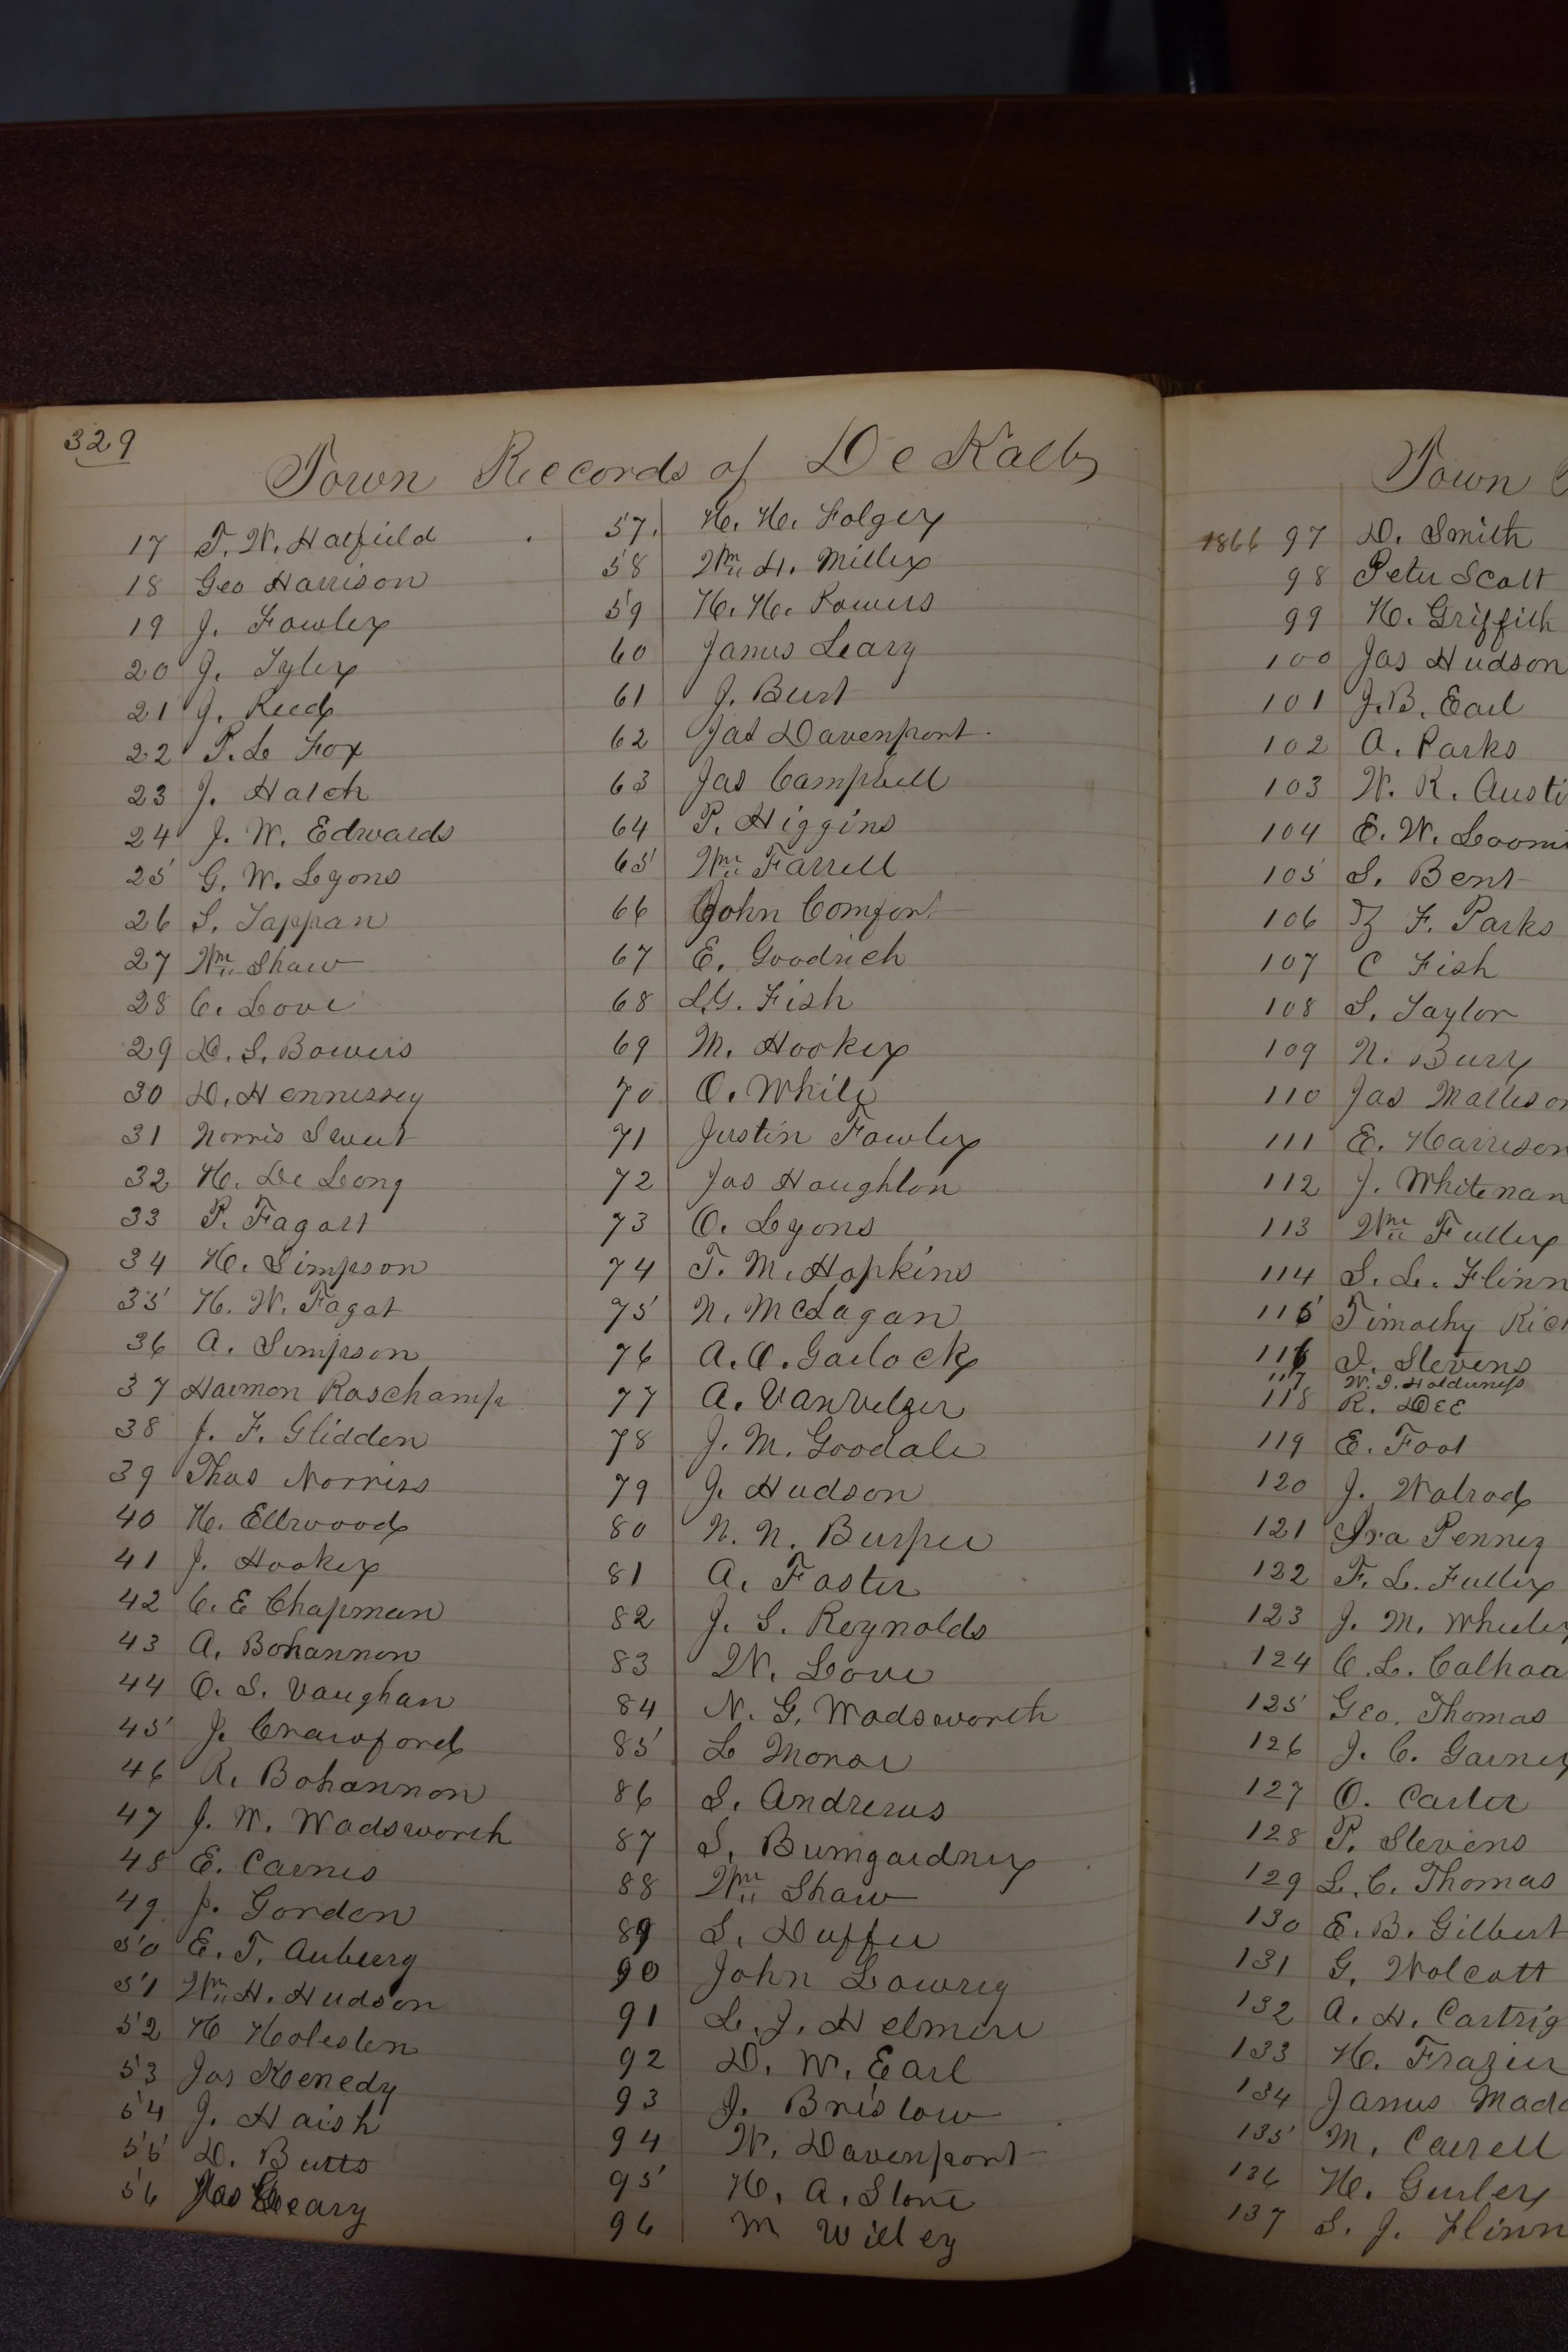 329
Town Records of De Kalb
17 T. W. Hatfield
18 Geo Harrison
19 J. Fowler
20 J. Tyler
21 J. Reed
22 P. L. Fox
23 J. Hatch
24 J. W. Edwards
25 G. W. Lyons
26 S. Tappan
27 Wm Shaw
28 C. Love
29 D. S. Bowers
30 D. Hennessey
31 Norris Sweet
32 H. De Long
33 P. Fagart
34 H. Simpson
35 H. W. Fagat
36 A. Simpson
37 Harmon Roschamp
38 J. F. Glidden
39 Thos Norriss
40 H. Ellwood
41 J. Hooker
42 C. E Chapman
43 A. Bohannon
44 O. S. Vaughan
45 J. Crawford
46 R. Bohannon
47 J. W. Wadsworth
48 E. Carnes
49 J. Gordon
50 E. T. Auberry
51 Wm H. Hudson
52 H Holeslen
53 Jas Kenedy
54 J. Haish
55 D. Butts
56 Jas Geary
57. H. H. Folger
58 Wm H. Miller
59 H. H. Powers
60 James Leary
61 J. Burt
62 Jas Davenport
63 Jas Campbell
64 P. Higgins
65 Wm Farrell
66 John Comfort
67 E. Goodrich
68 L. G. Fish
69 M. Hooker
70 O. White
71 Justin Fowler
72 Jas Houghton
73 O. Lyons
74 T. M. Hopkins
75 N. McLagan
76 A. O. Garlock
77 A. VanVelzer
78 J. M. Goodale
79 J. Hudson
80 N. N. Burpee
81 A. Foster
82 J. S. Reynolds
83 W. Love
84 N. G. Wadsworth
85 L Monar
86 S. Andrews
87 S. Bumgardner
88 Wm Shaw
89 S. Duffee
90 John Lowrey
91 L. J. Helmere
92 D. W. Earl
93 J. Bristow
94 W. Davenport
95 H. A. Stone
96 M Willey
Town
1866 97 D. Smith
98 Peter Scott
99 H. Griffith
100 Jas Hudson
101 J. B. Earl
102 A. Parks
103 W. K. Austi
104 E. W. Loomi
105 S. Bent
106 F. Parks
107 C Fish
108 S. Taylor
109 N. Bury
110 Jas Matteson
111 E. Harrison
112 J. Whiteman
113 Wm Fuller
114 S. L. Flinn
115 Timothy Rich
116 D. Stevens
117 W. I. Holderness
118 R. Dee
119 E. Foot
120 J. Walrod
121 Ira Penney
122 F. L. Fuller
123 J. M. Wheeler
124 C. L. Calhoa
125 Geo. Thomas
126 J. C. Garner
127 O. Carter
128 P. Stevens
129 L. C. Thomas
130 E. B. Gilbert
131 G. Wolcott
132 A. H. Cartrig
133 H. Frazier
134 James Madd
135 M. Carrell
136 H. Gurler
137 S. J. Flinn